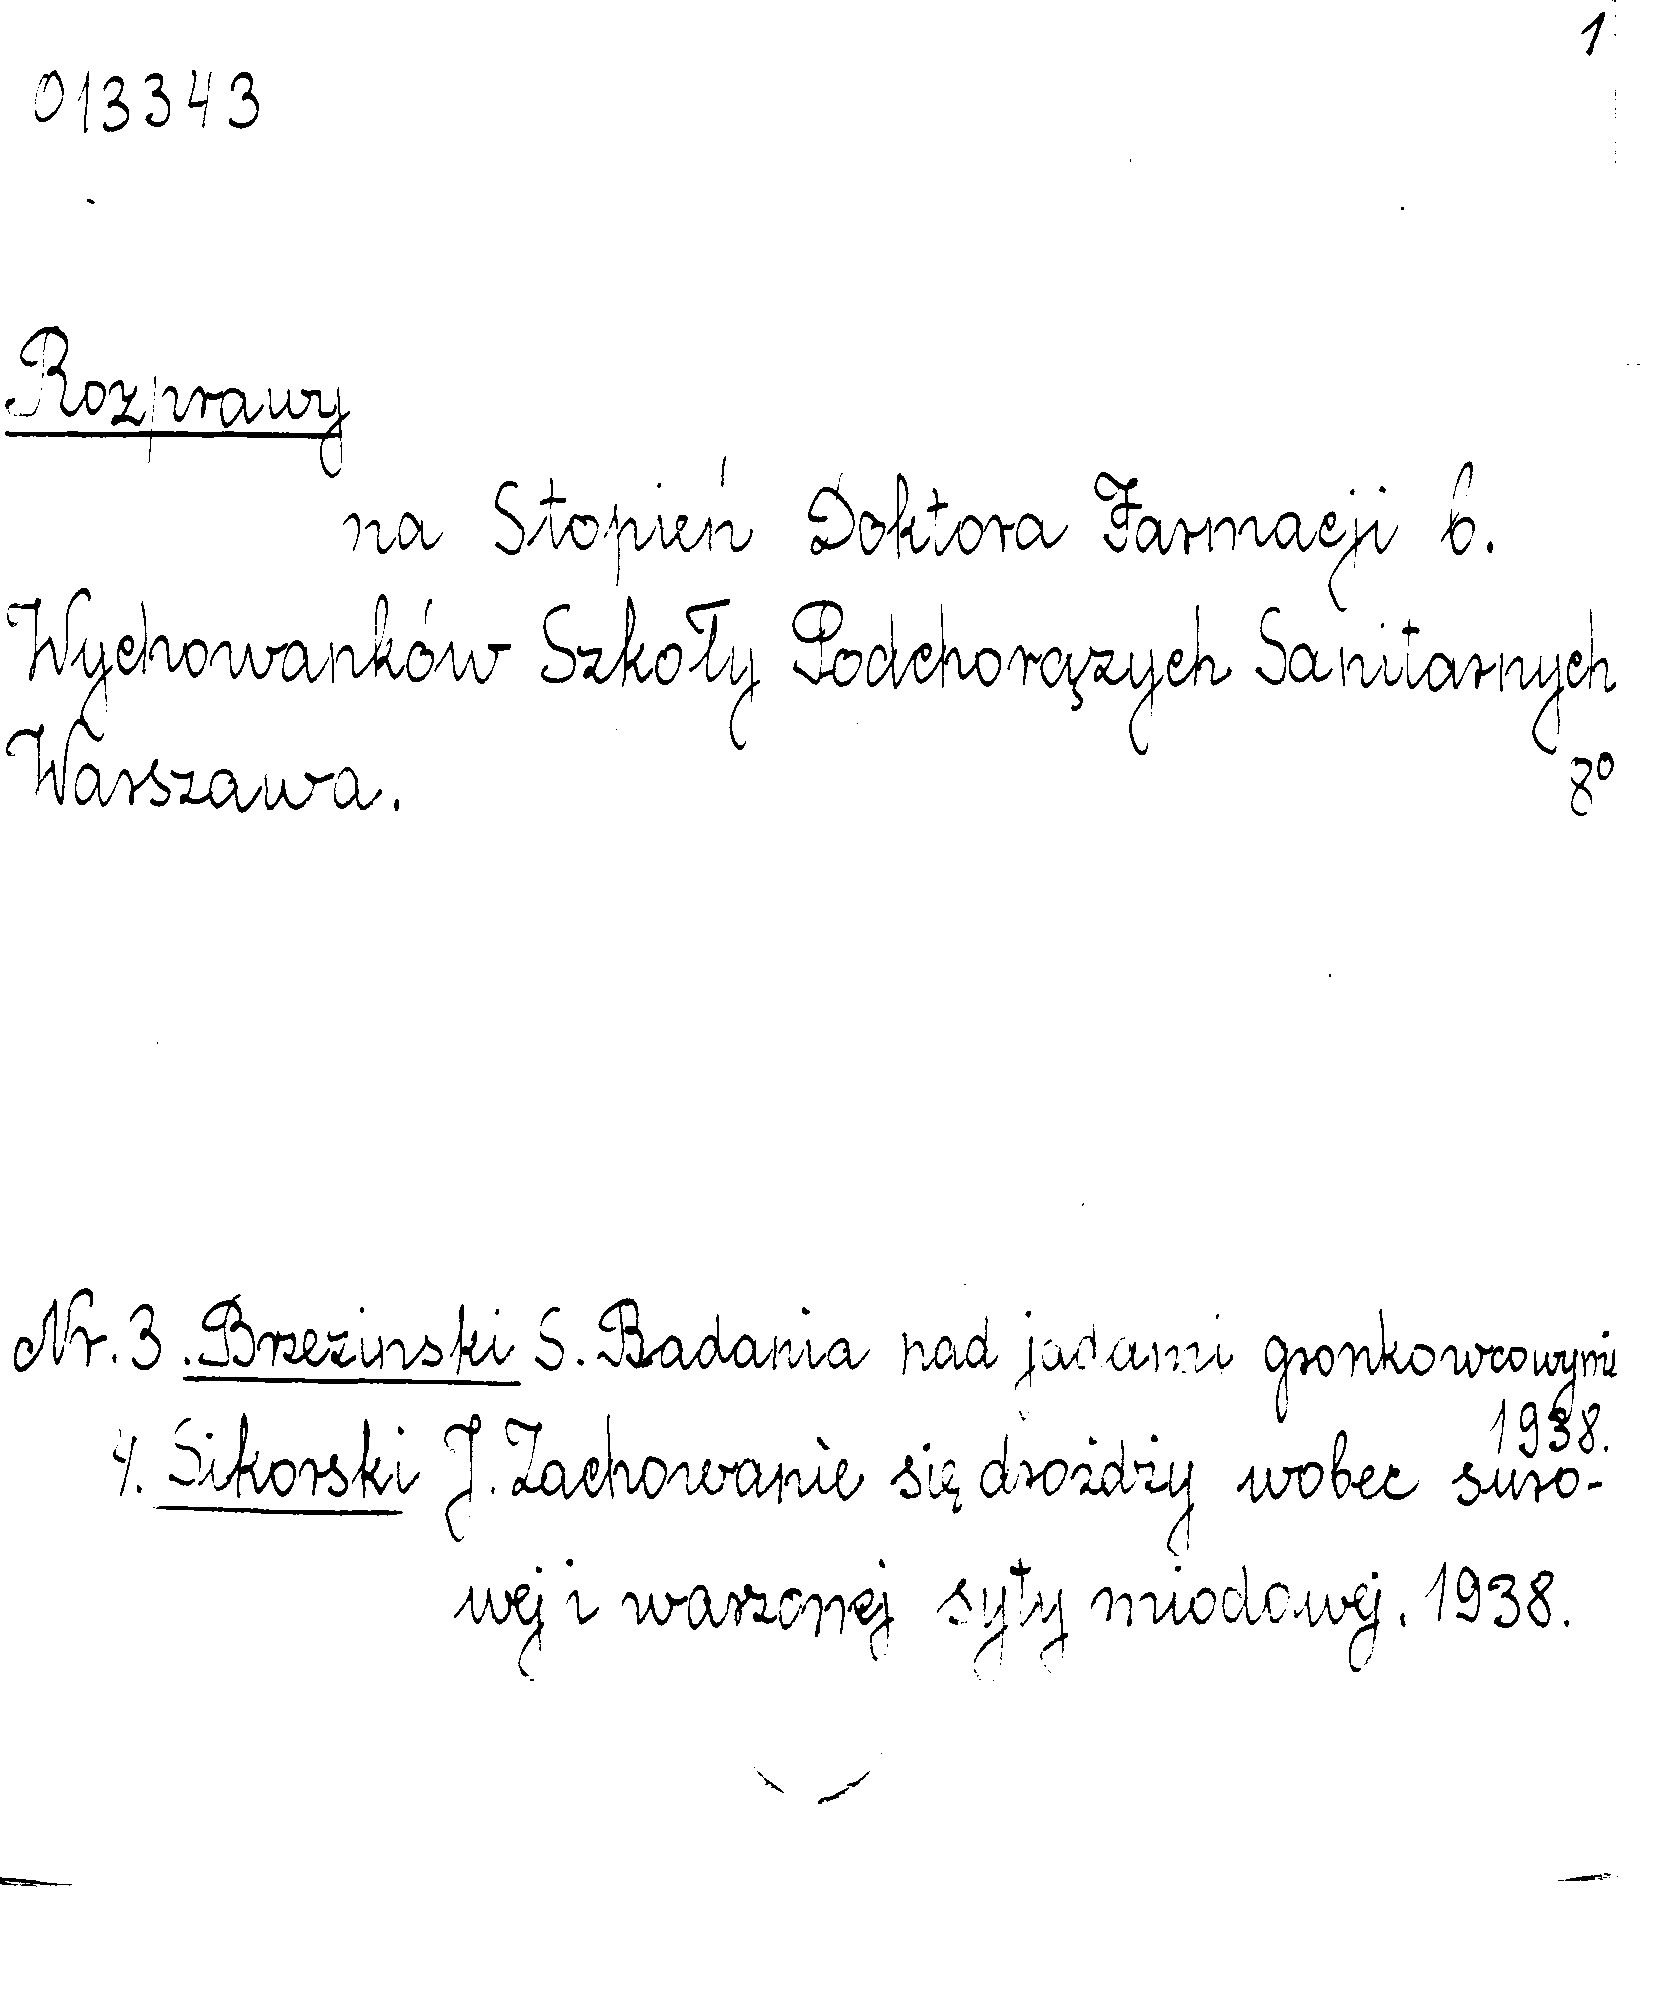 1
013343
Rozprawy
na Stopień Doktora Farmacji b.
Wychowanków Szkoły Podchorązych Sanitarnych
Warszawa. 8°
Nr. 3. Brzezinski S. Badania nad jadami gronkowcowymi
1938.
4. Sikorski J. Zachowanie się drożdży wobec suro-
wej i warzonej syty miodowej. 1938.